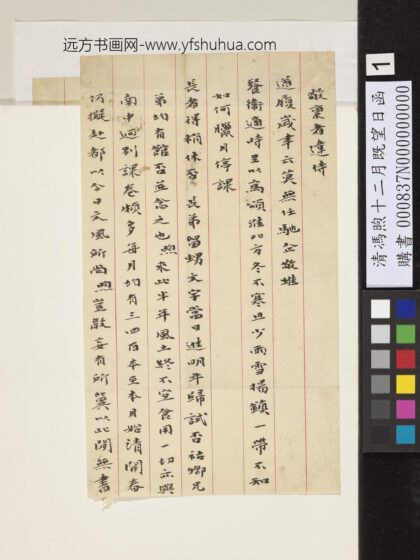 远方书画网-www.yfshuhua.com
敬稟者違時
道履歲聿云莫無任馳企敬維
餐衛適時里以為頌淮北方冬不寒且少雨雪揚鎮一帶不知
如何臘月停課
長者得稍休否 長弟留甥文字當日進明年歸試否詒鄉兄
弟均有館否並念之也煦來此半年風土終不宜食用一切亦與
南中迥別課卷頗多每月均有三四百本至本月始清閒春
仍擬赴都以今日文風所尚煦豈敢妄有所冀以此間無書
清馮煦十二月既望日函
購書 000837N000000000
1